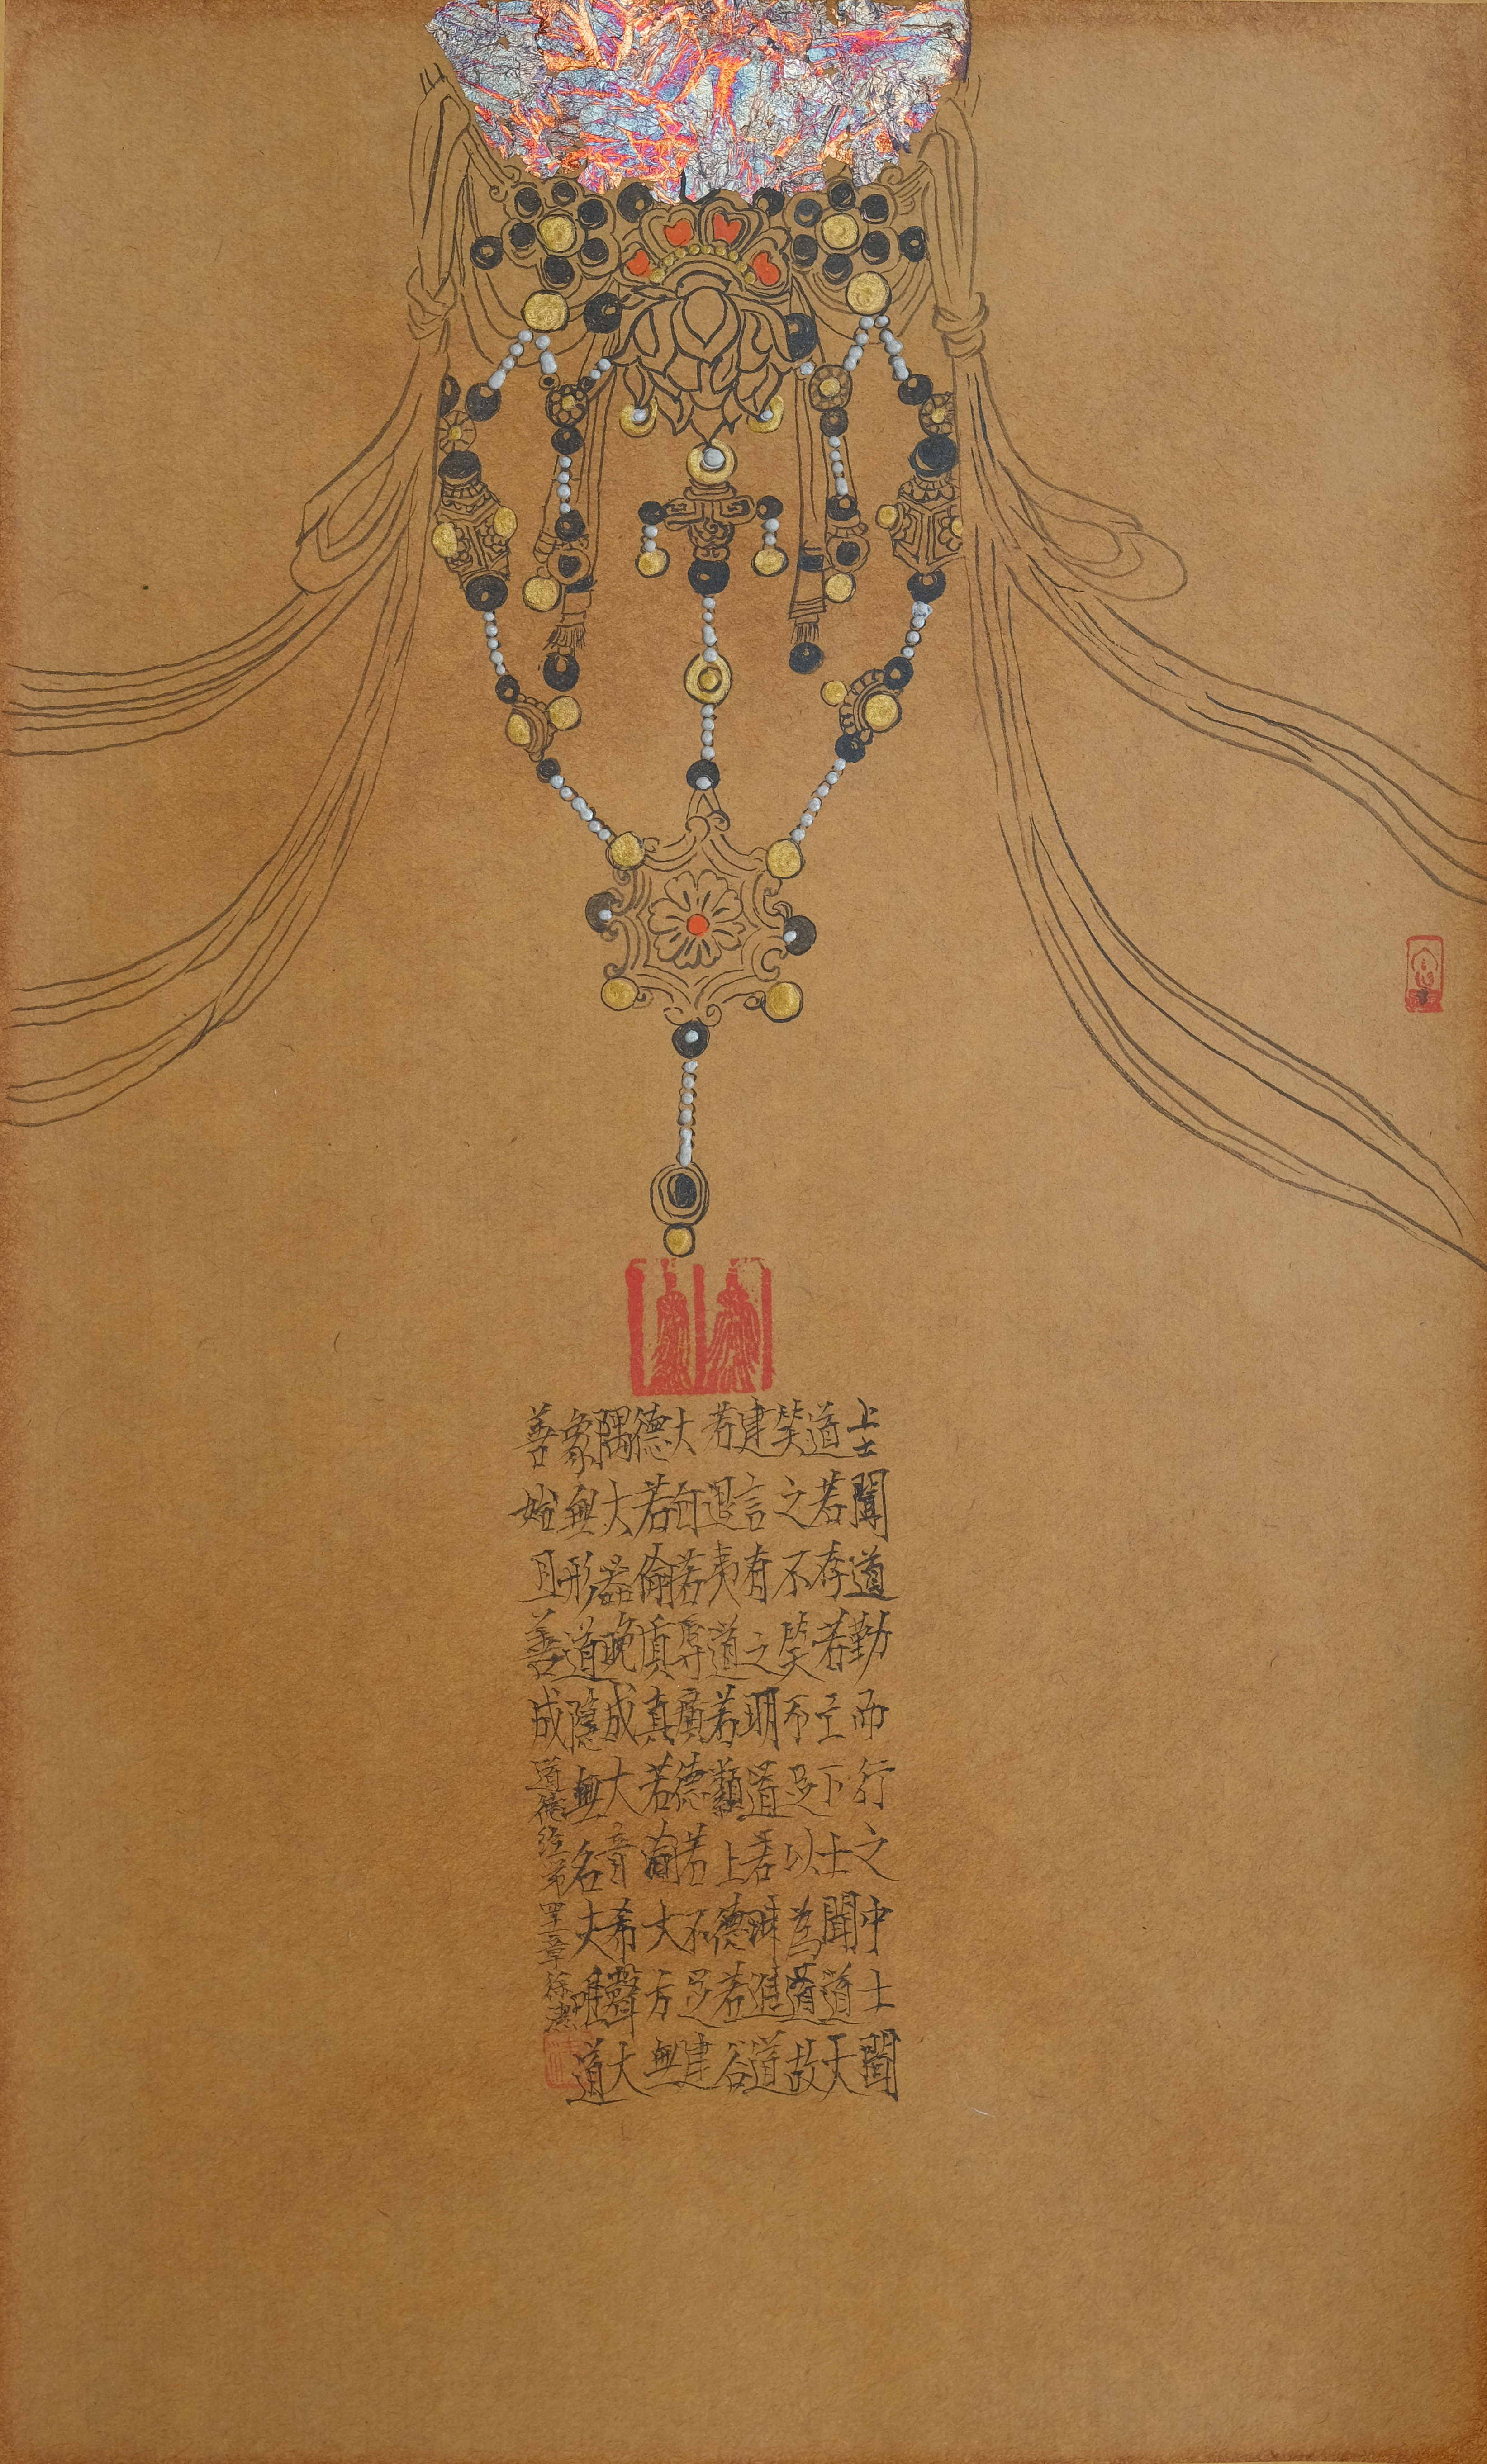 上士聞道勤而行之中士聞
道若存若亡下士聞道大
笑之不笑不足以為道故
建言有之明道若昧進道
若退夷道若類上德若谷
大白若辱廣德若不足建
德若偷質真若渝大方無
隅大器晚成大音希聲大
象無形道隱無名夫唯道
善始且善成道德经第四十一章徐